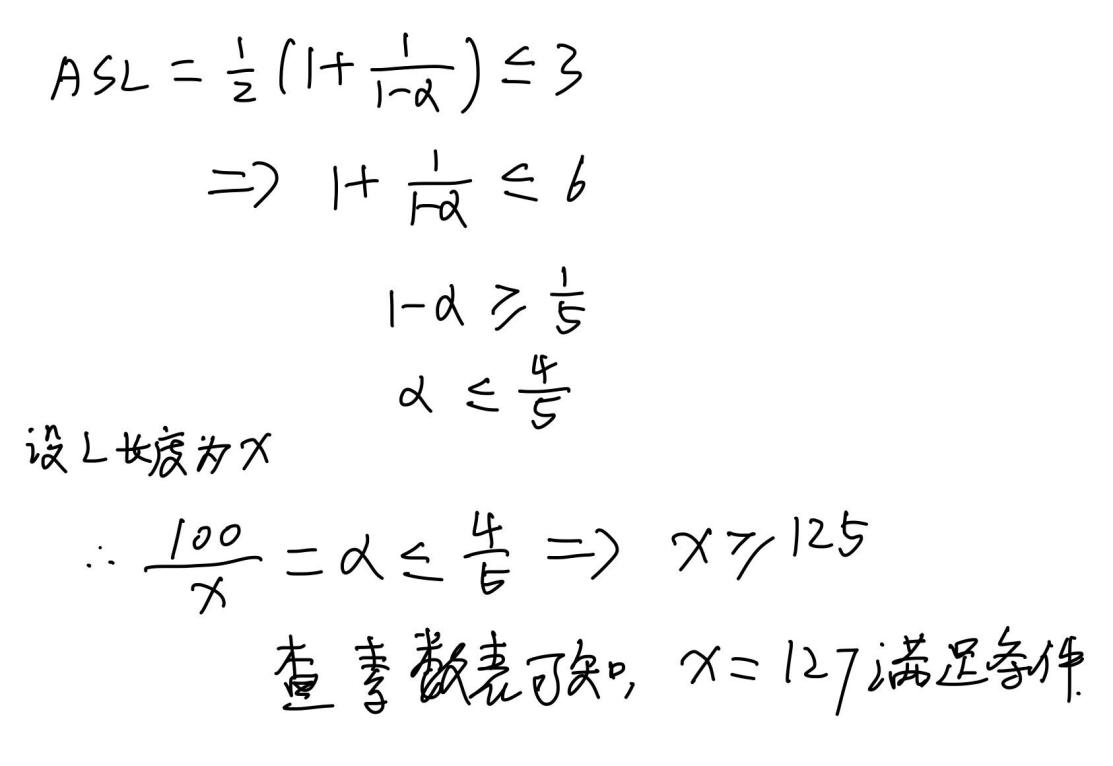 ASL = \frac{1}{2}(1+\frac{1}{1-α}) ≤ 3
⇒ 1+\frac{1}{1-α} ≤ 6
1-α ≥ \frac{1}{5}
α ≤ \frac{4}{5}
设L长度为x
∴ \frac{100}{x} = α ≤ \frac{4}{5} ⇒ x ≥ 125
查素数表可知, x = 127满足条件.